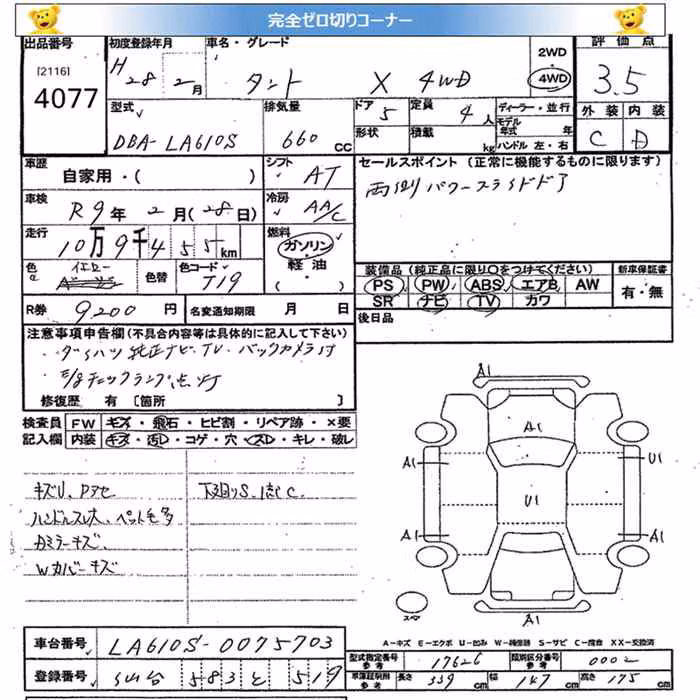 完全ゼロ切りコーナー
出品番号 初度登録年月 車名・グレード 2WD 評価点
[2116] H 28年 2月 タント X 4WD 4WD 3.5
4077
型式 排気量 ドア 定員 ディーラー・並行 外装 内装
DBA-LA610S 660CC 5 4人 モデル年式 年 C D
形状 積載 kg ハンドル 左・右
車歴 自家用・( ) シフト AT セールスポイント (正常に機能するものに限ります)
車検 R9年 2月(28日) 冷房 AA/C 両側パワースライドドア
走行 10万9千455km 燃料 ガソリン 軽油
装備品 (純正品に限り○をつけてください) 新車保証書
色 イエロー 色替 色コード T19 PS PW ABS エアB AW 有・無
R券 9200円 名変通知期限 月 日 SR ナビ TV カワ
後日品
注意事項申告欄(不具合内容等は具体的に記入して下さい)
・ダイハツ純正ナビ・TV・バックカメラ付
チェックランプ点灯
修復歴 有〔箇所 〕
検査員 FW キズ・飛石・ヒビ割・リペア跡・×要
記入欄 内装 キズ・汚レ・コゲ・穴・スレ・キレ・破レ
キズU、Pアセ 下廻りS.
ハンドルスレ大、ペット毛多
カミラーキズ
Wカバーキズ
A1
A1
A1 U1
U1
A1 A1
A1
スペア
A-キズ E-エクボ U-凹み W-補修跡 S-サビ C-腐食 XX-交換済
車台番号 LA610S-0075703
型式指定番号 参考 17626 類別区分番号 参考 0002
登録番号 仙台 583 と 519
車庫証明用 参考 長さ 339cm 幅 147cm 高さ 175cm